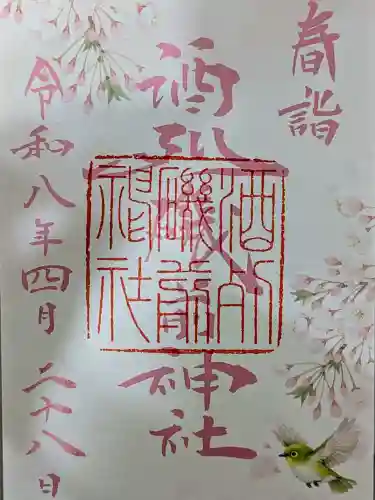 春詣
酒列磯前神社
令和八年四月二十八日
酒列
磯前
神社